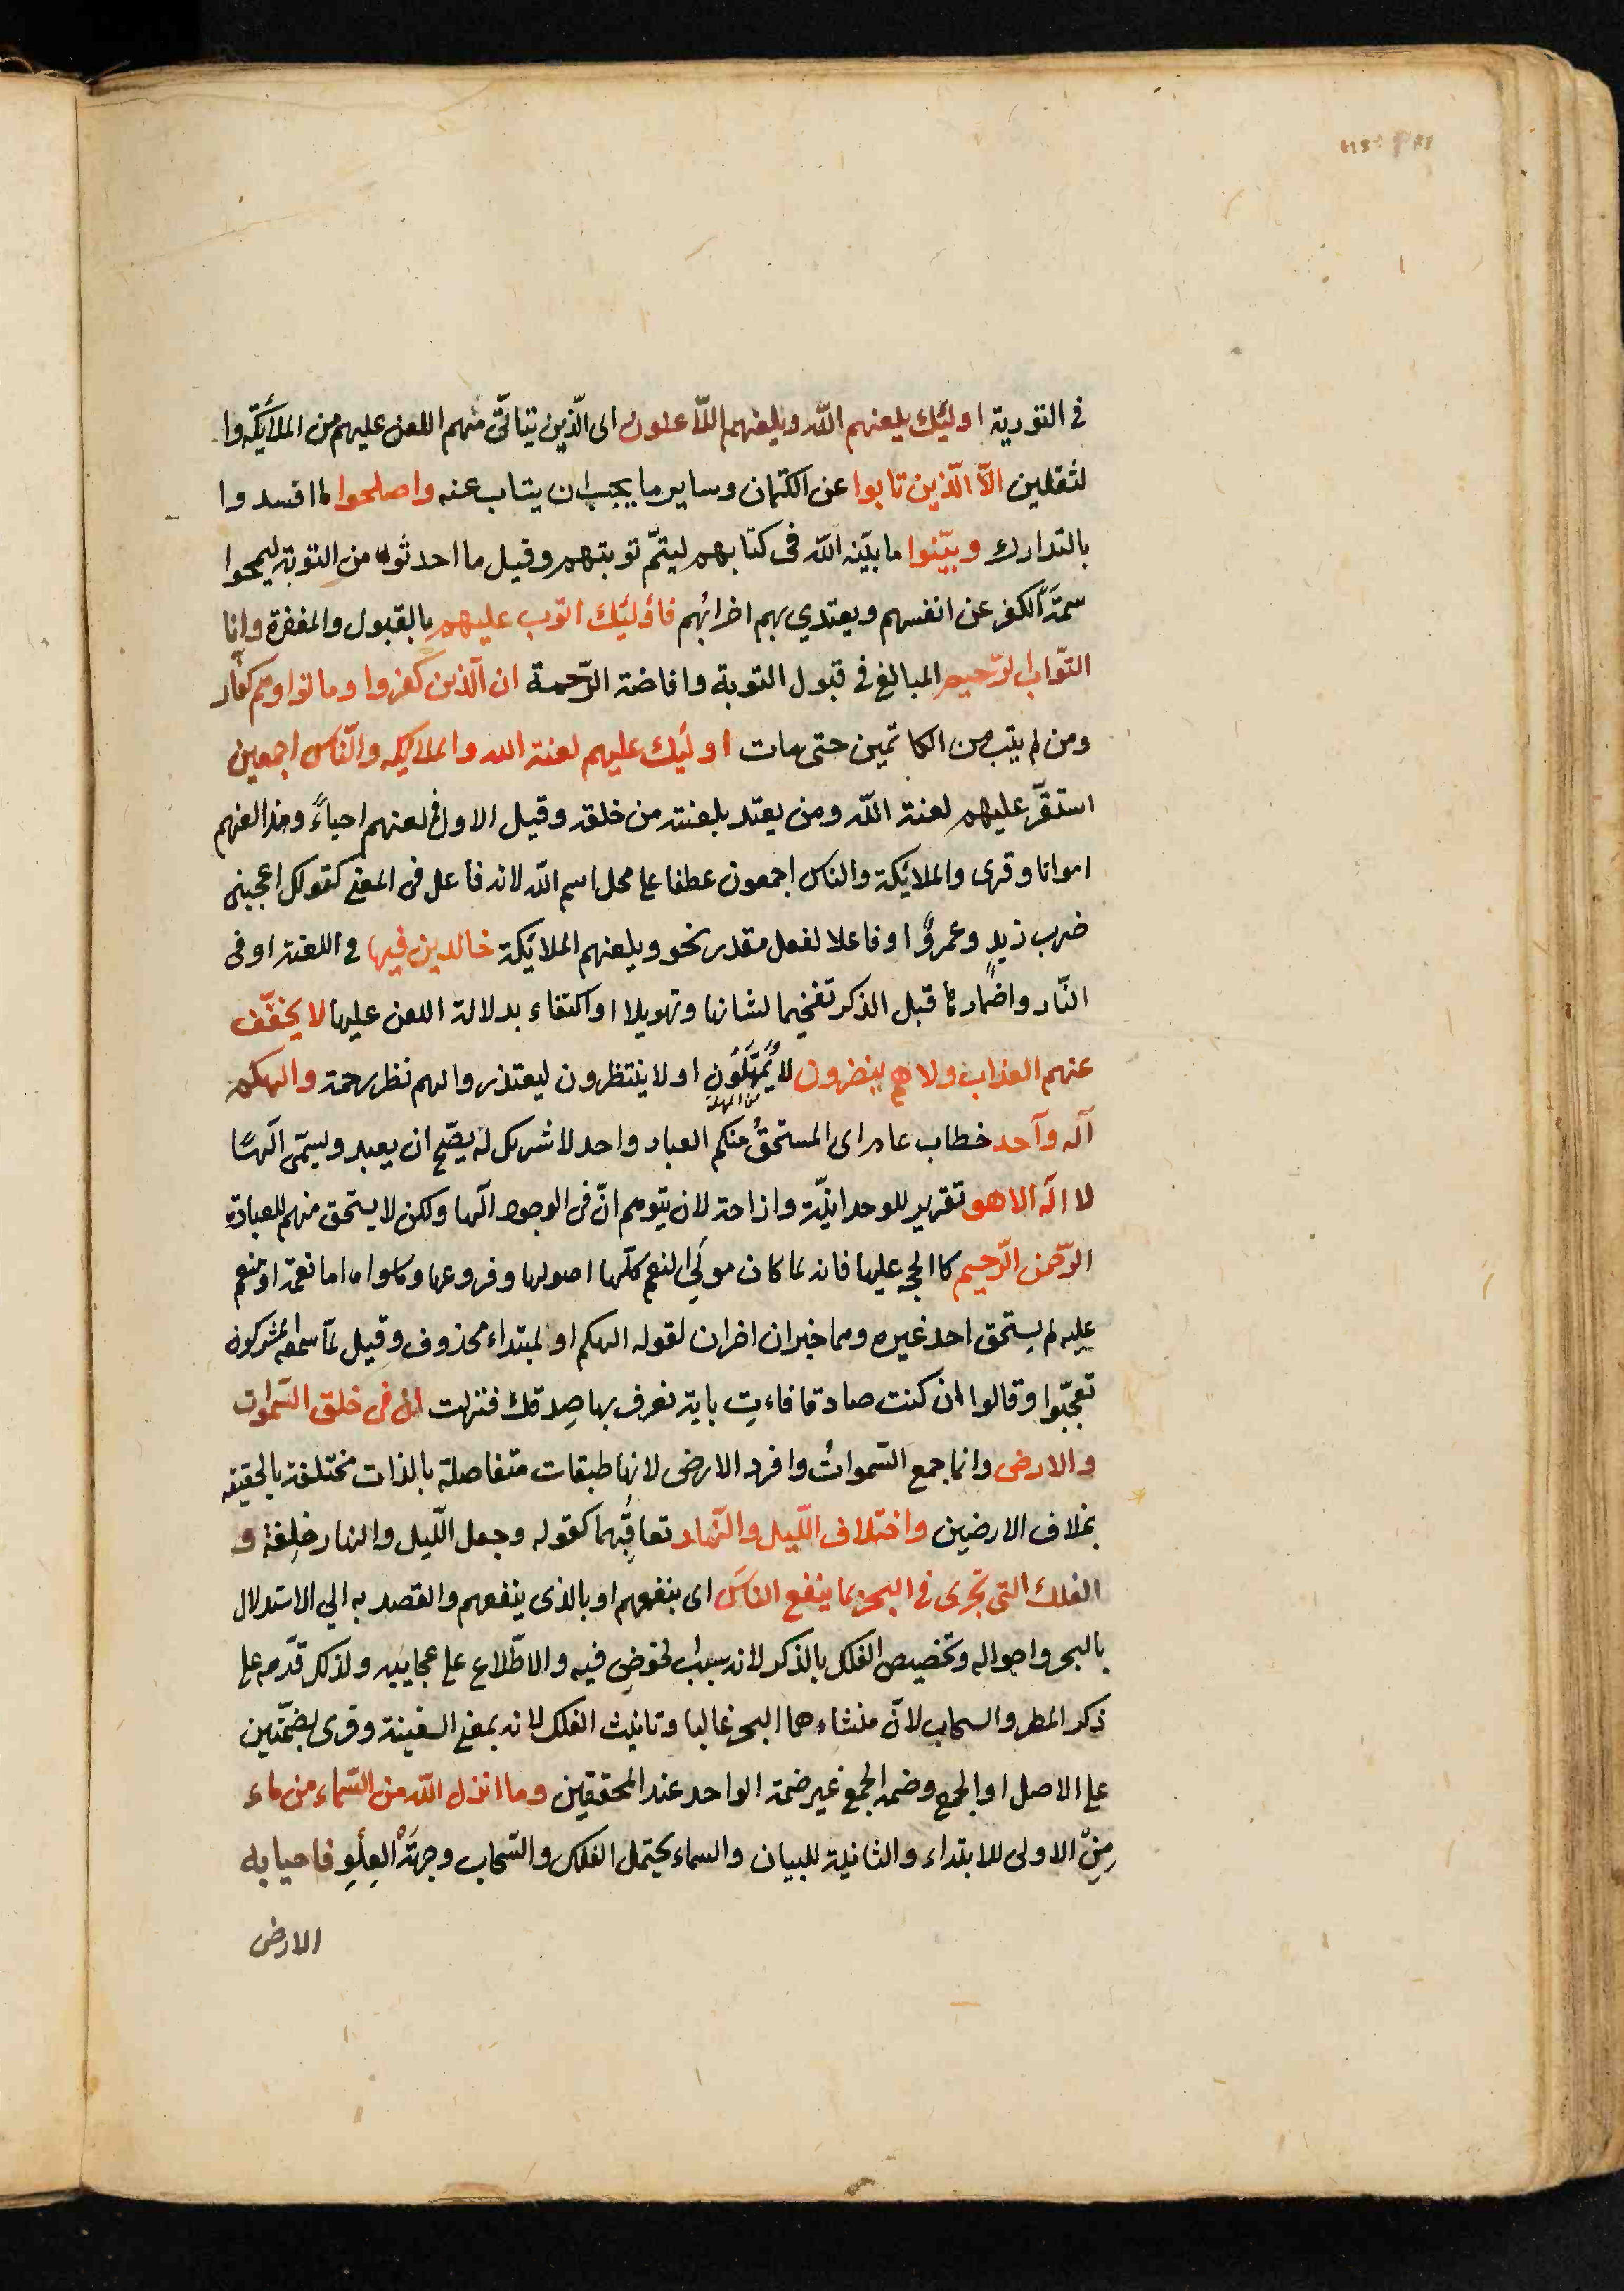 في التورية اولئك يلعنهم الله ويلعنهم اللّاعنون اى الّذين يتأتّى منهم اللعن عليهم من الملائكة وا
لثقلين الّا الّذين تابوا عن الكتمان وساير ما يجب ان يتاب عنه واصلحوا لما افسدوا
بالتدارك وبيّنوا ما بيّنه الله فى كتابهم ليتمّ توبتهم وقيل ما احدثوه من التوبة ليمحوا
سمة الكفر عن انفسهم ويقتدي بهم اضرابُهم فاولئك اتوب عليهم بالقبول والمغفرة وانا
التوّاب الرّحيم المبالغ في قبول التوبة وافاضة الرّحمة ان الّذين كفروا وماتوا وهم كفّار
ومن لم يتب من الكاتمين حتى مات اولئك عليهم لعنة الله والملائكه والنّاس اجمعين
استقرّ عليهم لعنة الله ومن يعتد بلعنته من خلقه وقيل الاول لعنهم احياءً وهذا لعنهم
امواتا وقرى والملائكة والناس اجمعون عطفا على محل اسم الله لانه فاعل فى المعنى كقولك اعجبنى
ضرب زيدٍ وعمروٌ او فاعلا لفعل مقدر نحو ويلعنهم الملائكة خالدين فيها في اللعنة او فى
النّار واضمارها قبل الذكر تفخيما لشانها وتهويلا او اكتفاء بدلالة اللعن عليها لا يخفّف
عنهم العذاب ولا هم ينضرون لا يُمْهَلُون او لا ينتظرون ليعتذروا لهم نظر رحمة والهكم
من المهلة
اله واحد خطاب عام اى المستحقُّ منكم العباد واحد لا شريك له يصّح ان يعبد ويسمّى الٰهًا
لا اله الا هو تقرير للوحدانيّة وازاحة لان يتوهم انّ فى الوجود الٰها ولكن لا يستحق منهم للعبادة
الرّحمن الرّحيم كالحجة عليها فانه لما كان مولى النعم كلّها اصولها وفروعها وما سواه اما نعمة او منعم
عليه لم يستحق احد غيره وهما خبران اخران لقوله الهكم او لمبتداء محذوف وقيل لمّا سمعه المشركون
تعجّبوا وقالوا ان كنت صادقا فاءتِ باية نعرف بها صِدقك فنزلت ان فى خلق السّموات
والارض وانما جمع السّمواتُ وافرد الارض لانها طبقات متفاصلة بالذات مختلفة بالحقيقه
بخلاف الارضين واختلاف اللّيل والنّهار تعاقبُهما كقوله وجعل اللّيل والنهار خلِفة و
الفلك التى تجرى في البحر بما ينفع الناسَ اى بنفعهم او بالذى ينفعهم والقصد به الي الاستدلال
بالبحر واحواله وتخصيص الفلك بالذكر لانه سبب الخوض فيه والاطّلاع على عجايبه ولذلك قدّمه على
ذكر المطر والسحاب لانّ منشاءهما البحر غالبا وتانيث الفلك لانه بمعنى السفينة وقرى بضمّتين
على الاصل او الجمع وضمه الجمع غير ضمة الواحد عند المحققين وما انزل الله من السّماء من ماء
مِنْ الاولى للابتداء والثانية للبيان والسماء يحتمل الفلك والسّحاب وجهةَ العِلُوِ فاحيا به
الارض